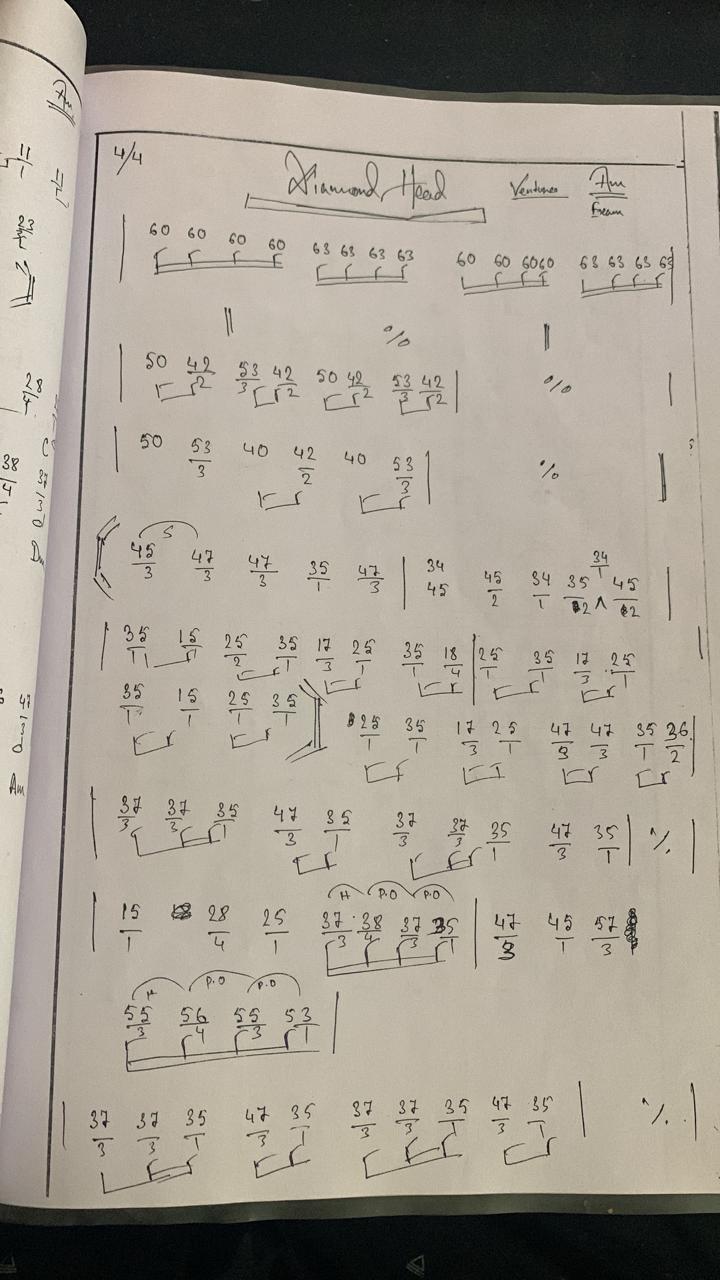 4/4 Diamond Head Ventures Am
60 60 60 60 63 63 63 63 60 60 60 60 63 63 63 63
%
50 42/2 53/3 42/2 50 42/2 53/3 42/2 %
50 53/3 40 42/2 40 53/3 %
S
45/3 47/3 47/3 35/1 47/3 34 45 45/2 34/1 35 34/1 45
35/1 15/1 25/2 35/1 17/3 25/1 35/1 18/4 25/1 35/1 17/3 25/1
35/1 15/1 25/1 35/1 25/1 35/1 17/3 25/1 47/3 47/3 35/1 36/2
37/3 37/3 35/1 47/3 35/1 37/3 37/3 35/1 47/3 35/1 %
H P.O P.O
15/1 28/4 25/1 37/3 38/4 37/3 35/1 47/3 45/1 57/3
H P.O P.O
55/3 56/4 55/3 53/1
37/3 37/3 35/1 47/3 35/1 37/3 37/3 35/1 47/3 35/1 %